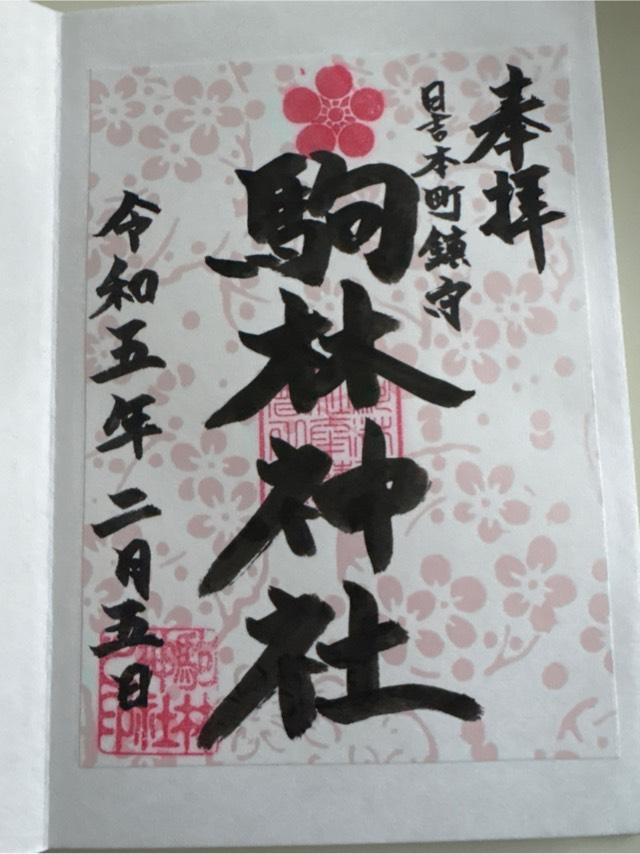 奉拝
日吉本町鎮守
駒林神社
令和五年二月五日
駒林
神社